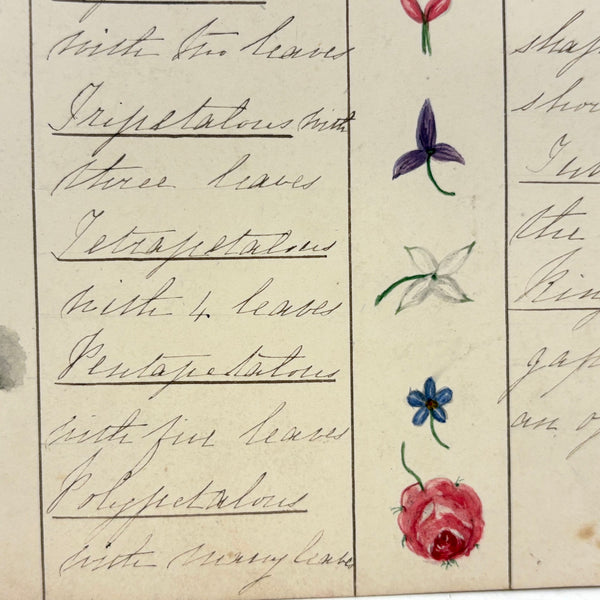 with two leaves
Tripetalous with
three leaves
Tetrapetalous
with 4 leaves
Pentapetalous
with five leaves
Polypetalous
with many leaves
the
an